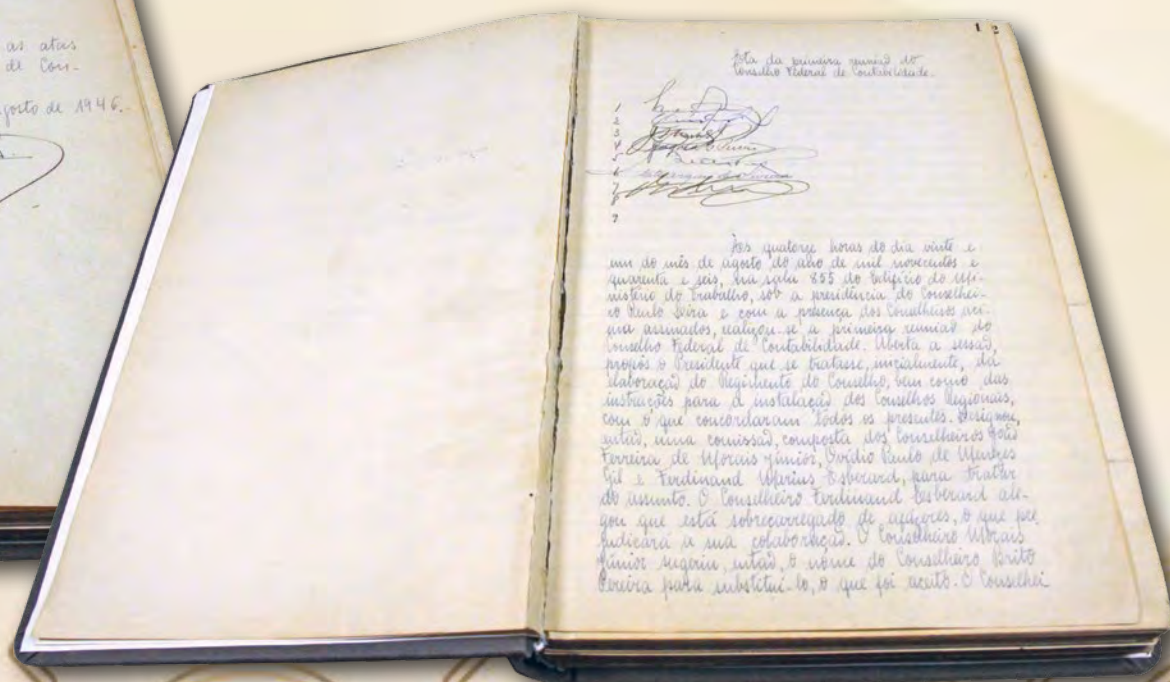 as atas
de Con-
gosto de 1946.-
1 2
Ata da primeira reunião do
Conselho Federal de Contabilidade.
1
2
3
4
5
6
7
8
9
Às quatorze horas do dia vinte e
um do mês de agosto do ano de mil novecentos e
quarenta e seis, na sala 855 do Edifício do Mi-
nistério do Trabalho, sob a presidência do Conselhei-
ro Paulo Lira e com a presença dos Conselheiros aci-
ma assinados, realizou-se a primeira reunião do
Conselho Federal de Contabilidade. Aberta a sessão,
propôs o Presidente que se tratasse, inicialmente, da
elaboração do Regimento do Conselho, bem como das
instruções para a instalação dos Conselhos Regionais,
com o que concordaram todos os presentes. Designou,
então, uma comissão, composta dos Conselheiros João
Ferreira de Morais Júnior, Ovídio Paulo de Menezes
Gil e Ferdinand Marius Esberard, para tratar
do assunto. O Conselheiro Ferdinand Esberard ale-
gou que está sobrecarregado de afazeres, o que pre
judicará a sua colaboração. O Conselheiro Morais
Júnior sugeriu, então, o nome do Conselheiro Brito
Pereira para substituí-lo, o que foi aceito. O Conselhei